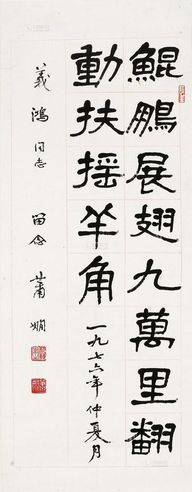 鯤鵬展翅九萬里翻
動扶搖羊角
一九七六年仲夏月
義鴻同志 留念 蕭嫻